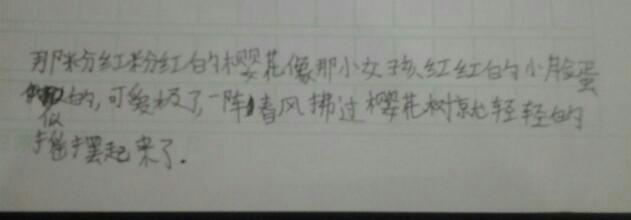 那粉红粉红的樱花像那小女孩红红的小脸蛋
似的,可爱极了,一阵春风拂过樱花树就轻轻的
摇摆起来了.